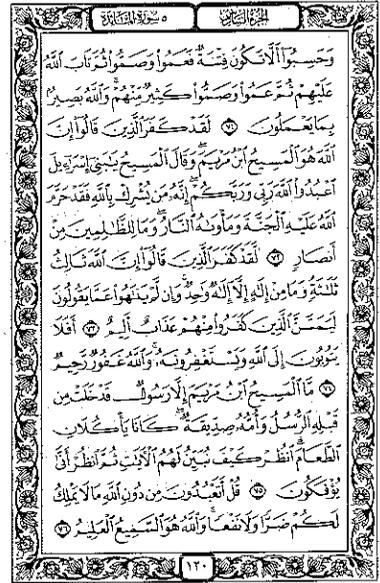 الجزء السادس ٥ سورة المائدة
وَحَسِبُوٓا۟ أَلَّا تَكُونَ فِتْنَةٌ فَعَمُوا۟ وَصَمُّوا۟ ثُمَّ تَابَ ٱللَّهُ
عَلَيْهِمْ ثُمَّ عَمُوا۟ وَصَمُّوا۟ كَثِيرٌ مِّنْهُمْ وَٱللَّهُ بَصِيرٌۢ
بِمَا يَعْمَلُونَ ٧١ لَقَدْ كَفَرَ ٱلَّذِينَ قَالُوٓا۟ إِنَّ
ٱللَّهَ هُوَ ٱلْمَسِيحُ ٱبْنُ مَرْيَمَ وَقَالَ ٱلْمَسِيحُ يَٰبَنِىٓ إِسْرَٰٓءِيلَ
ٱعْبُدُوا۟ ٱللَّهَ رَبِّى وَرَبَّكُمْ إِنَّهُۥ مَن يُشْرِكْ بِٱللَّهِ فَقَدْ حَرَّمَ
ٱللَّهُ عَلَيْهِ ٱلْجَنَّةَ وَمَأْوَىٰهُ ٱلنَّارُ وَمَا لِلظَّٰلِمِينَ مِنْ
أَنصَارٍ ٧٢ لَّقَدْ كَفَرَ ٱلَّذِينَ قَالُوٓا۟ إِنَّ ٱللَّهَ ثَالِثُ
ثَلَٰثَةٍ وَمَا مِنْ إِلَٰهٍ إِلَّآ إِلَٰهٌ وَٰحِدٌ وَإِن لَّمْ يَنتَهُوا۟ عَمَّا يَقُولُونَ
لَيَمَسَّنَّ ٱلَّذِينَ كَفَرُوا۟ مِنْهُمْ عَذَابٌ أَلِيمٌ ٧٣ أَفَلَا
يَتُوبُونَ إِلَى ٱللَّهِ وَيَسْتَغْفِرُونَهُۥ وَٱللَّهُ غَفُورٌ رَّحِيمٌ
٧٤ مَّا ٱلْمَسِيحُ ٱبْنُ مَرْيَمَ إِلَّا رَسُولٌ قَدْ خَلَتْ مِن
قَبْلِهِ ٱلرُّسُلُ وَأُمُّهُۥ صِدِّيقَةٌ كَانَا يَأْكُلَانِ
ٱلطَّعَامَ ٱنظُرْ كَيْفَ نُبَيِّنُ لَهُمُ ٱلْءَايَٰتِ ثُمَّ ٱنظُرْ أَنَّىٰ
يُؤْفَكُونَ ٧٥ قُلْ أَتَعْبُدُونَ مِن دُونِ ٱللَّهِ مَا لَا يَمْلِكُ
لَكُمْ ضَرًّا وَلَا نَفْعًا وَٱللَّهُ هُوَ ٱلسَّمِيعُ ٱلْعَلِيمُ ٧٦
١٢٠